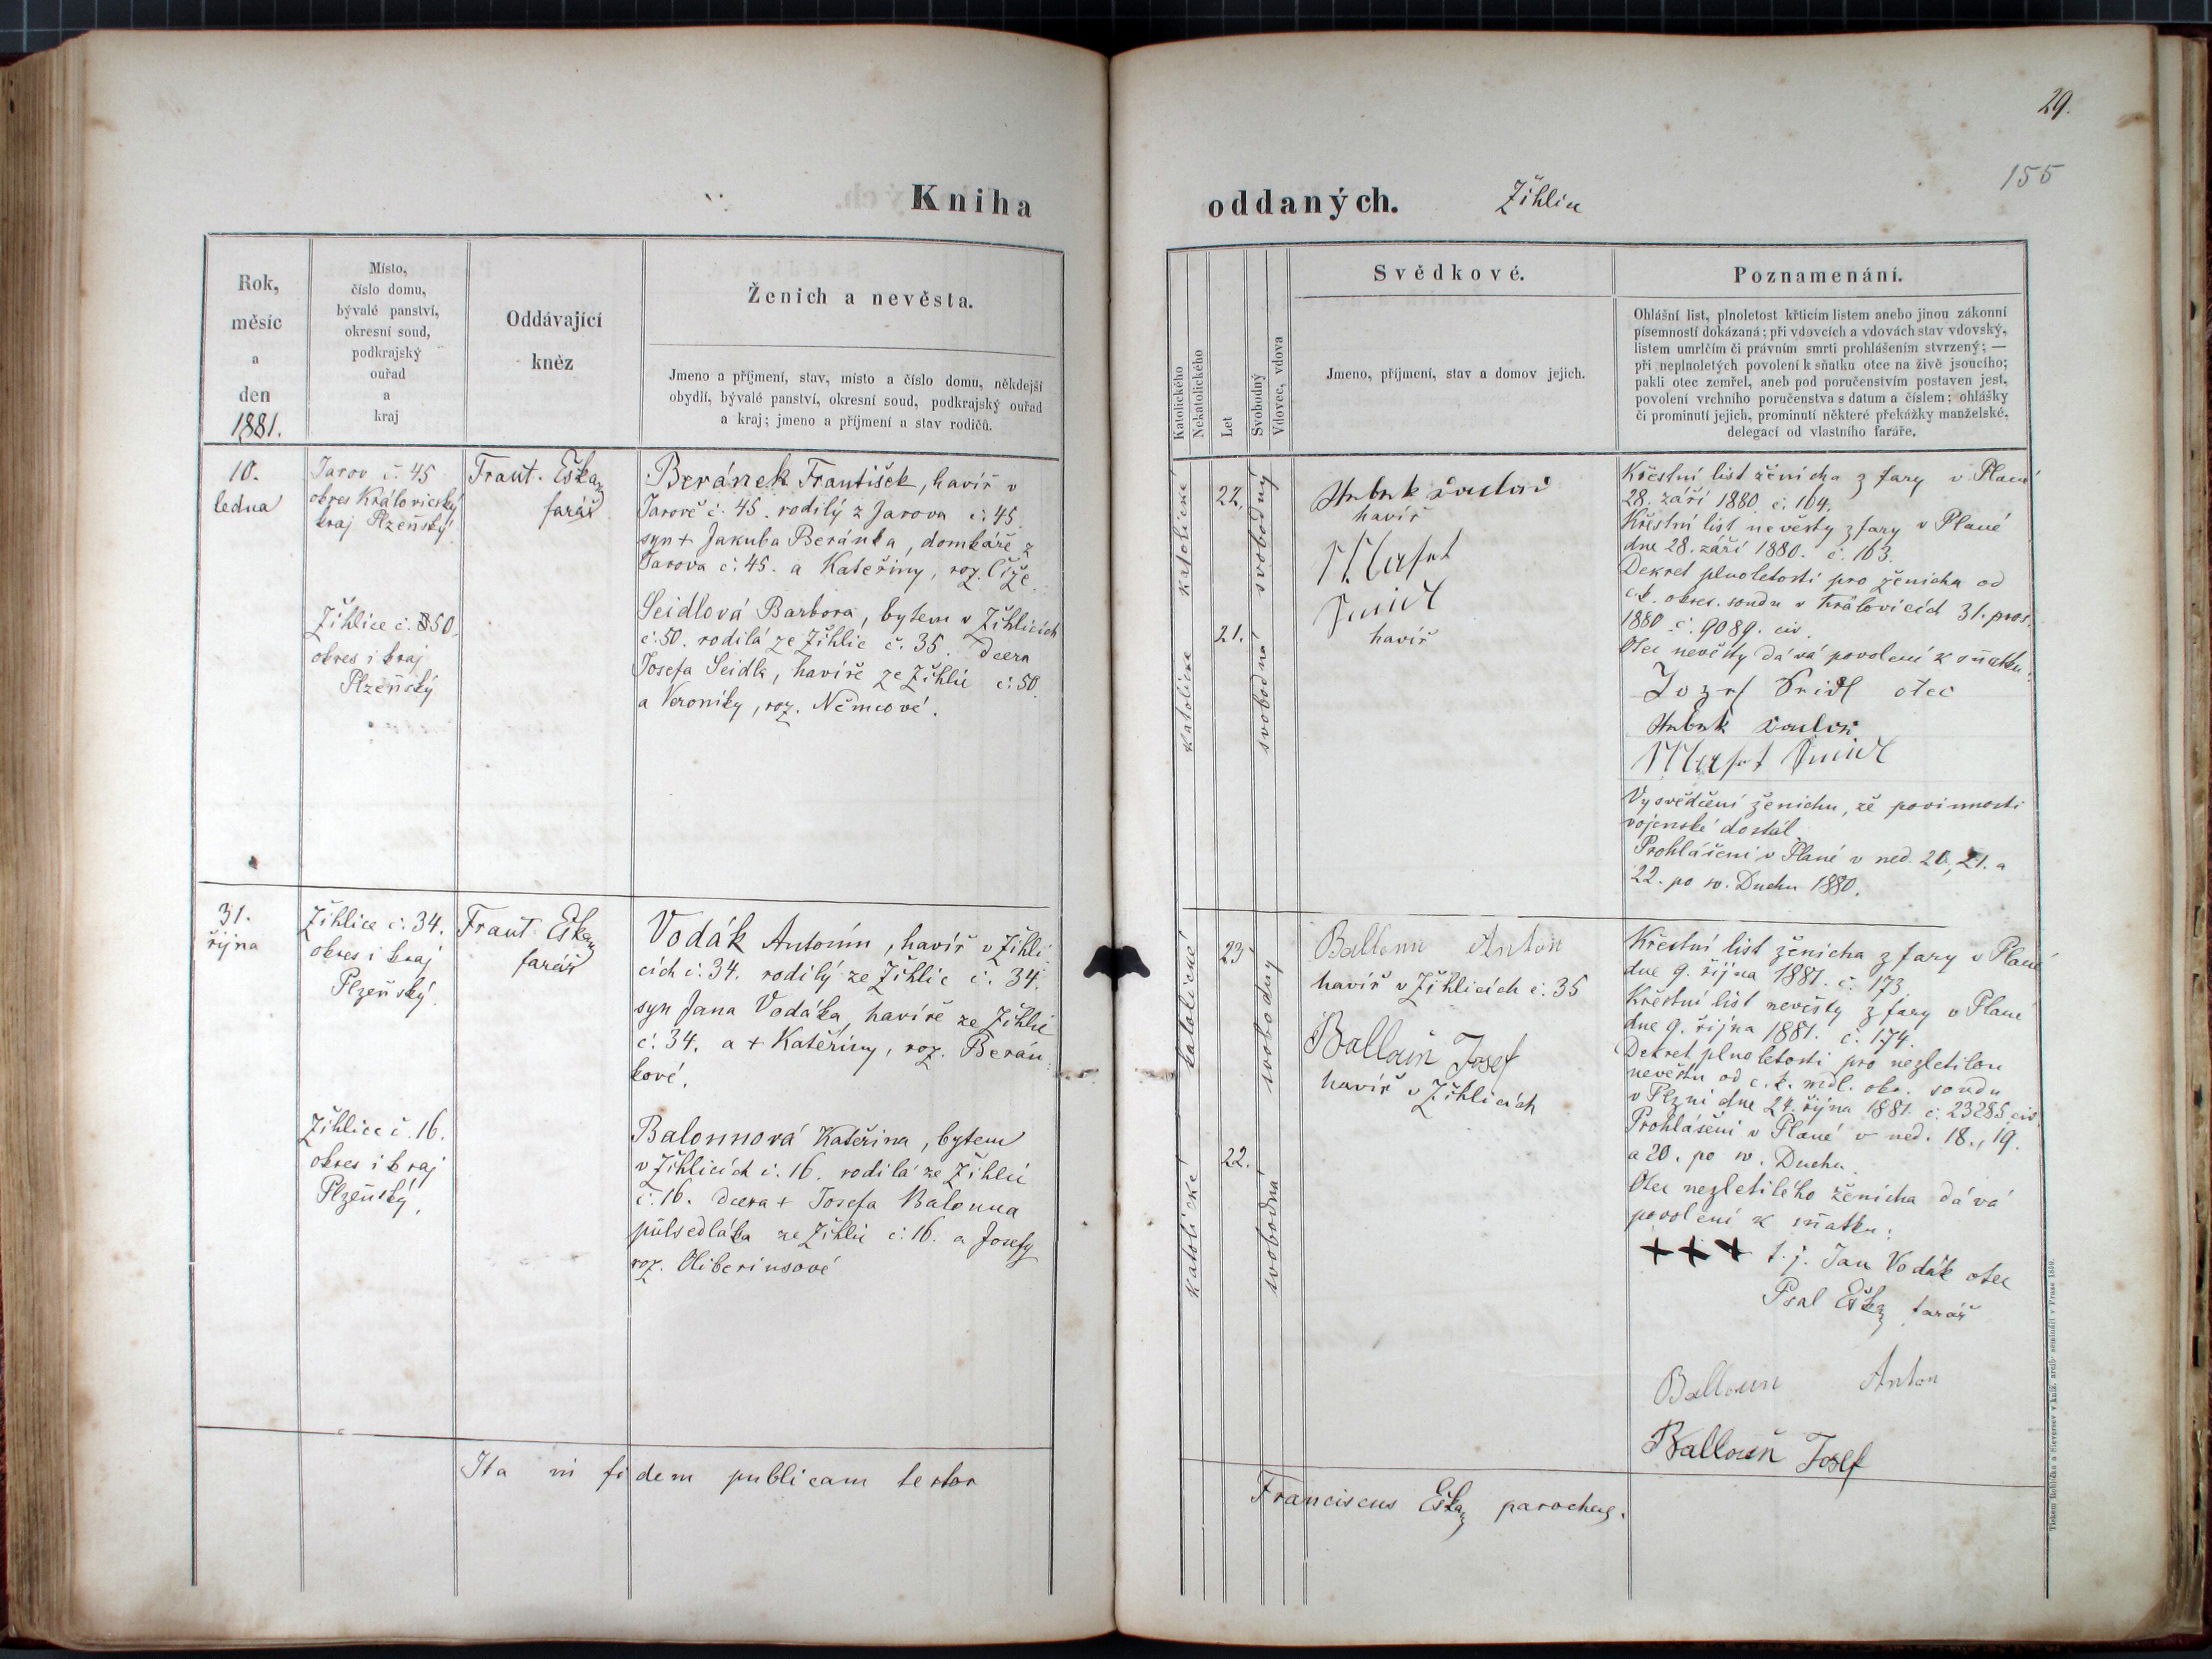 29.
155
Kniha
oddaných.
Žihlice
Rok,
měsíc
a
den
1881.
Místo,
číslo domu,
bývalé panství,
okresní soud,
podkrajský
ouřad
a
kraj
Oddávající
kněz
Ženich a nevěsta.
Jmeno a příjmení, stav, místo a číslo domu, někdejší
obydlí, bývalé panství, okresní soud, podkrajský ouřad
a kraj; jmeno a příjmení a stav rodičů.
10.
ledna
Jarov č. 45
okres Královický
kraj Plzeňský
Frant. Eška
farář
Beránek František, havíř v
Jarově č. 45. rodilý z Jarova č. 45.
syn + Jakuba Beránka, domkáře z
Jarova č. 45. a Kateřiny, roz. Číže
Žihlice č. 50.
okres i kraj
Plzeňský
Seidlová Barbora, bytem v Žihlicích
č. 50. rodilá ze Žihlic č. 35. dcera
Josefa Seidla, havíře ze Žihlic č. 50.
a Veroniky, roz. Němcové.
31.
října
Žihlice č. 34.
okres i kraj
Plzeňský.
Frant Eška
farář
Vodák Antonín, havíř v Žihli
cích č. 34. rodilý ze Žihlic č. 34.
syn Jana Vodáka, havíře ze Žihlic
č. 34. a + Kateřiny, roz. Berán
kové.
Žihlice č. 16.
okres i kraj
Plzeňský.
Balounová Kateřina, bytem
v Žihlicích č. 16. rodilá ze Žihlic
č. 16. dcera + Josefa Balouna
půlsedláka ze Žihlic č. 16. a Josefy
roz. Oliberiusové
Ita in fidem publicam testor
Katolického
Nekatolického
Let
Svobodný
Vdovec, vdova
Svědkové.
Jmeno, příjmení, stav a domov jejich.
Poznamenání.
Ohlášní list, plnoletost křticím listem anebo jinou zákonní
písemností dokázaná; při vdovcích a vdovách stav vdovský,
listem umrlčím či právním smrti prohlášením stvrzený; —
při neplnoletých povolení k sňatku otce na živě jsoucího;
pakli otec zemřel, aneb pod poručenstvím postaven jest,
povolení vrchního poručenstva s datum a číslem; ohlášky
či prominutí jejich, prominutí některé překážky manželské,
delegací od vlastního faráře.
katolické
22.
svobodný
havíř
katolické
21.
svobodná
havíř
Křestní list ženicha z fary v Plané
28. září 1880 č. 164.
Křestní list nevěsty z fary v Plané
dne 28. září 1880. č. 163.
Dekret plnoletosti pro ženicha od
c.k. okres. soudu v Královicích 31. pros.
1880 č. 9089. civ.
Otec nevěsty dává povolení k sňatku:
Jozef Seidl otec
Vysvědčení ženichu, že povinnosti
vojenské dostál
Prohlášeni v Plané v ned. 20., 21. a
22. po sv. Duchu 1880.
katolické
23
svobodný
Balloun Anton
havíř v Žihlicích č. 35
Balloun Josef
havíř v Žihlicích
katolické
22.
svobodná
Křestní list ženicha z fary v Plané
dne 9. října 1881. č. 173.
Křestní list nevěsty z fary v Plané
dne 9. října 1881. č. 174.
Dekret plnoletosti pro nezletilou
nevěstu od c. k. měl. okr. soudu
v Plzni dne 24. října 1881. č. 23285 civ.
Prohlášeni v Plané v ned. 18., 19.
a 20. po sv. Duchu.
Otec nezletilého ženicha dává
povolení k sňatku:
+++ t. j. Jan Vodák otec
Psal Eška farář
Balloun Anton
Balloun Josef
Franciscus Eška parochus.